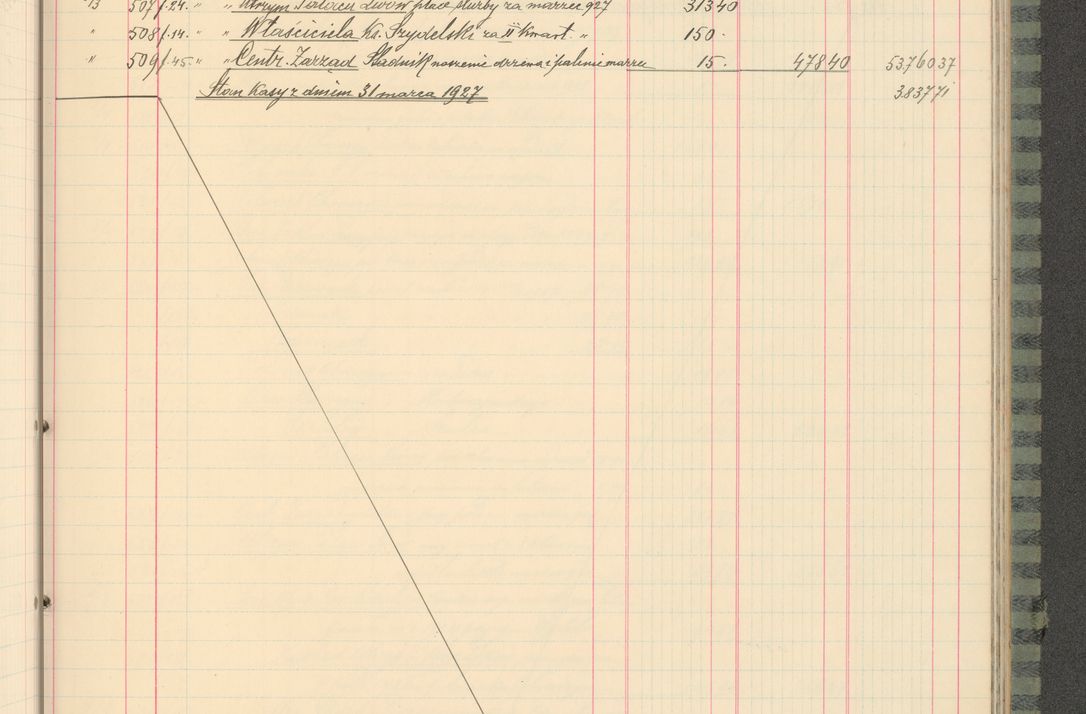 "/3 507/.24. " " Utrzym. Pałacu Lwów płace służby za marzec 927 313 40
" 508/.14. " " Właściciela Ks. Szydelski za II kwart. " 150.
" 509/.45. " " Centr. Zarząd Sładnisk noszenie drzewa i palenie marzec 15. 478 40 53.760 37
Stan Kasy z dniem 31 marca 1927 3.837 71